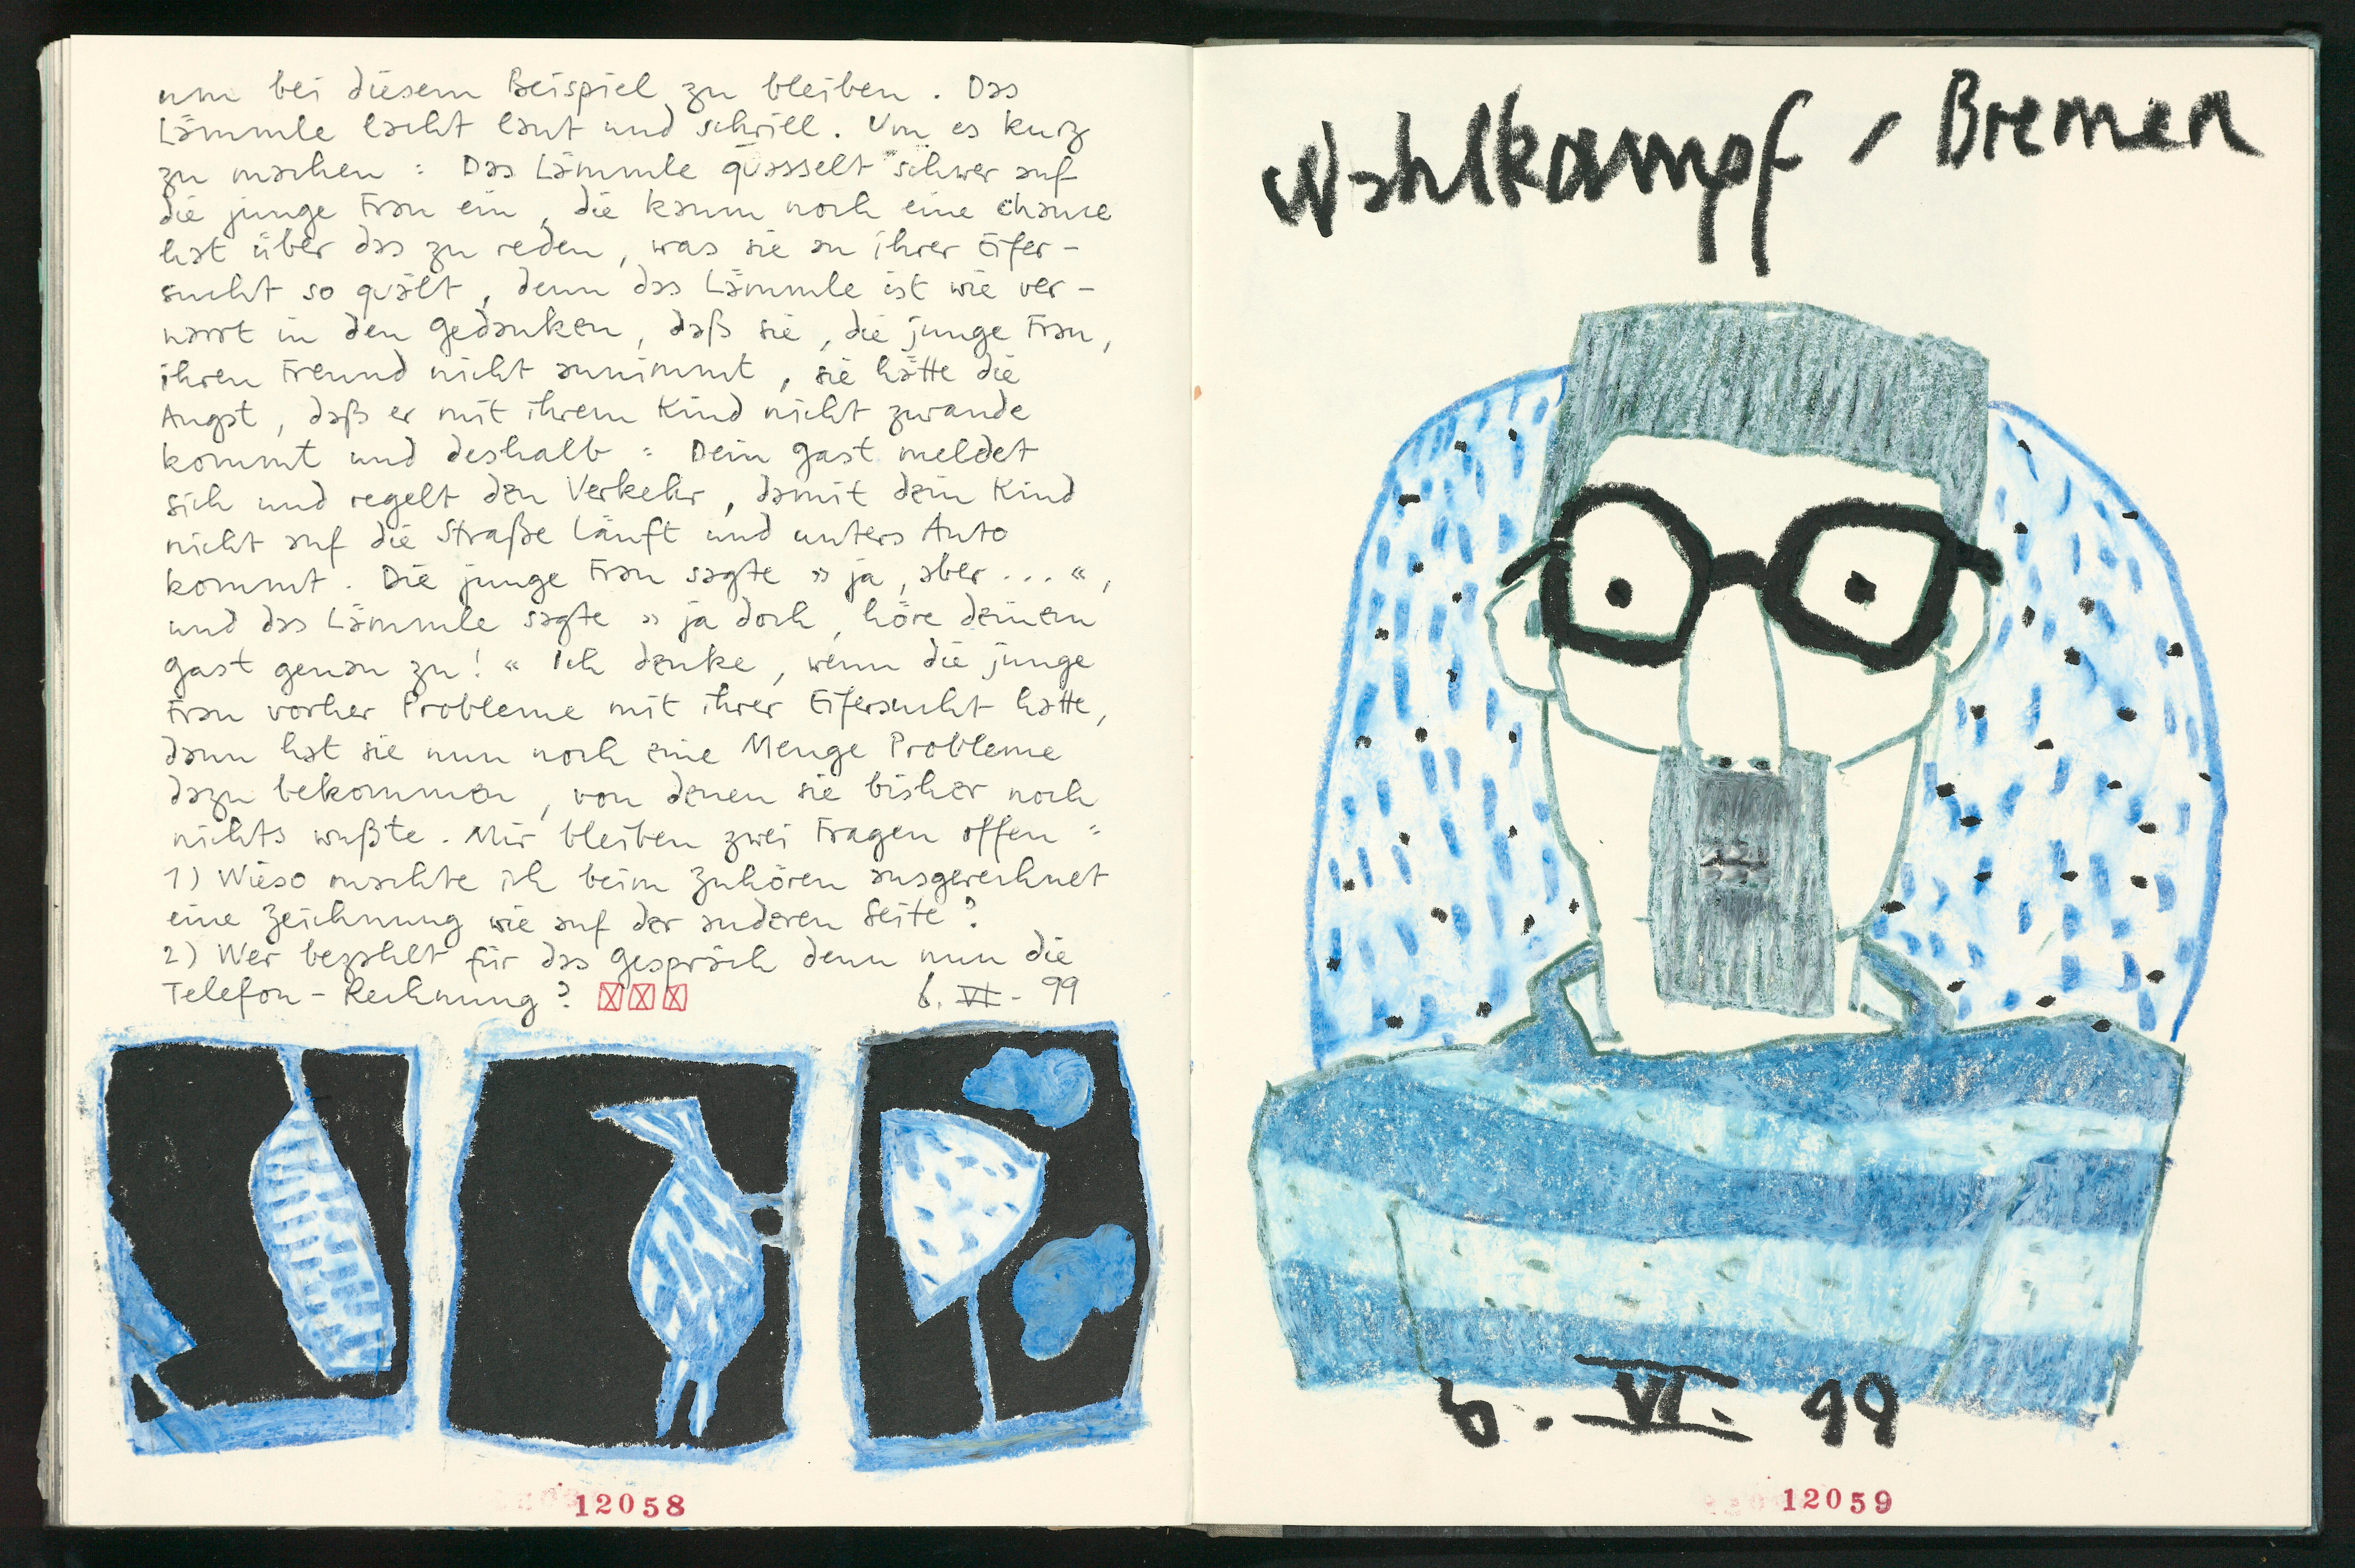 um bei diesem Beispiel zu bleiben. Das
Lämmle lacht laut und schrill. Um es kurz
zu machen: Das Lämmle quasselt schwer auf
die junge Frau ein, die kaum noch eine chance
hat über das zu reden, was sie an ihrer Eifer-
sucht so quält, denn das Lämmle ist wie ver-
narrt in den gedanken, daß sie, die junge Frau,
ihren Freund nicht annimmt, sie hätte die
Angst, daß er mit ihrem Kind nicht zurande
kommt und deshalb: Dein gast meldet
sich und regelt den Verkehr, damit dein Kind
nicht auf die Straße läuft und unters Auto
kommt. Die junge Frau sagte » ja, aber ... «,
und das Lämmle sagte » ja doch, höre deinem
gast genau zu! « Ich denke, wenn die junge
Frau vorher Probleme mit ihrer Eifersucht hatte,
dann hat sie nun noch eine Menge Probleme
dazu bekommen, von denen sie bisher noch
nichts wußte. Mir bleiben zwei Fragen offen:
1) Wieso machte ich beim Zuhören ausgerechnet
eine Zeichnung wie auf der anderen Seite?
2) Wer bezahlt für das gespräch denn nun die
Telefon-Rechnung? 6. VI. 99
12058
Wahlkampf / Bremen
6. VI. 99
12059